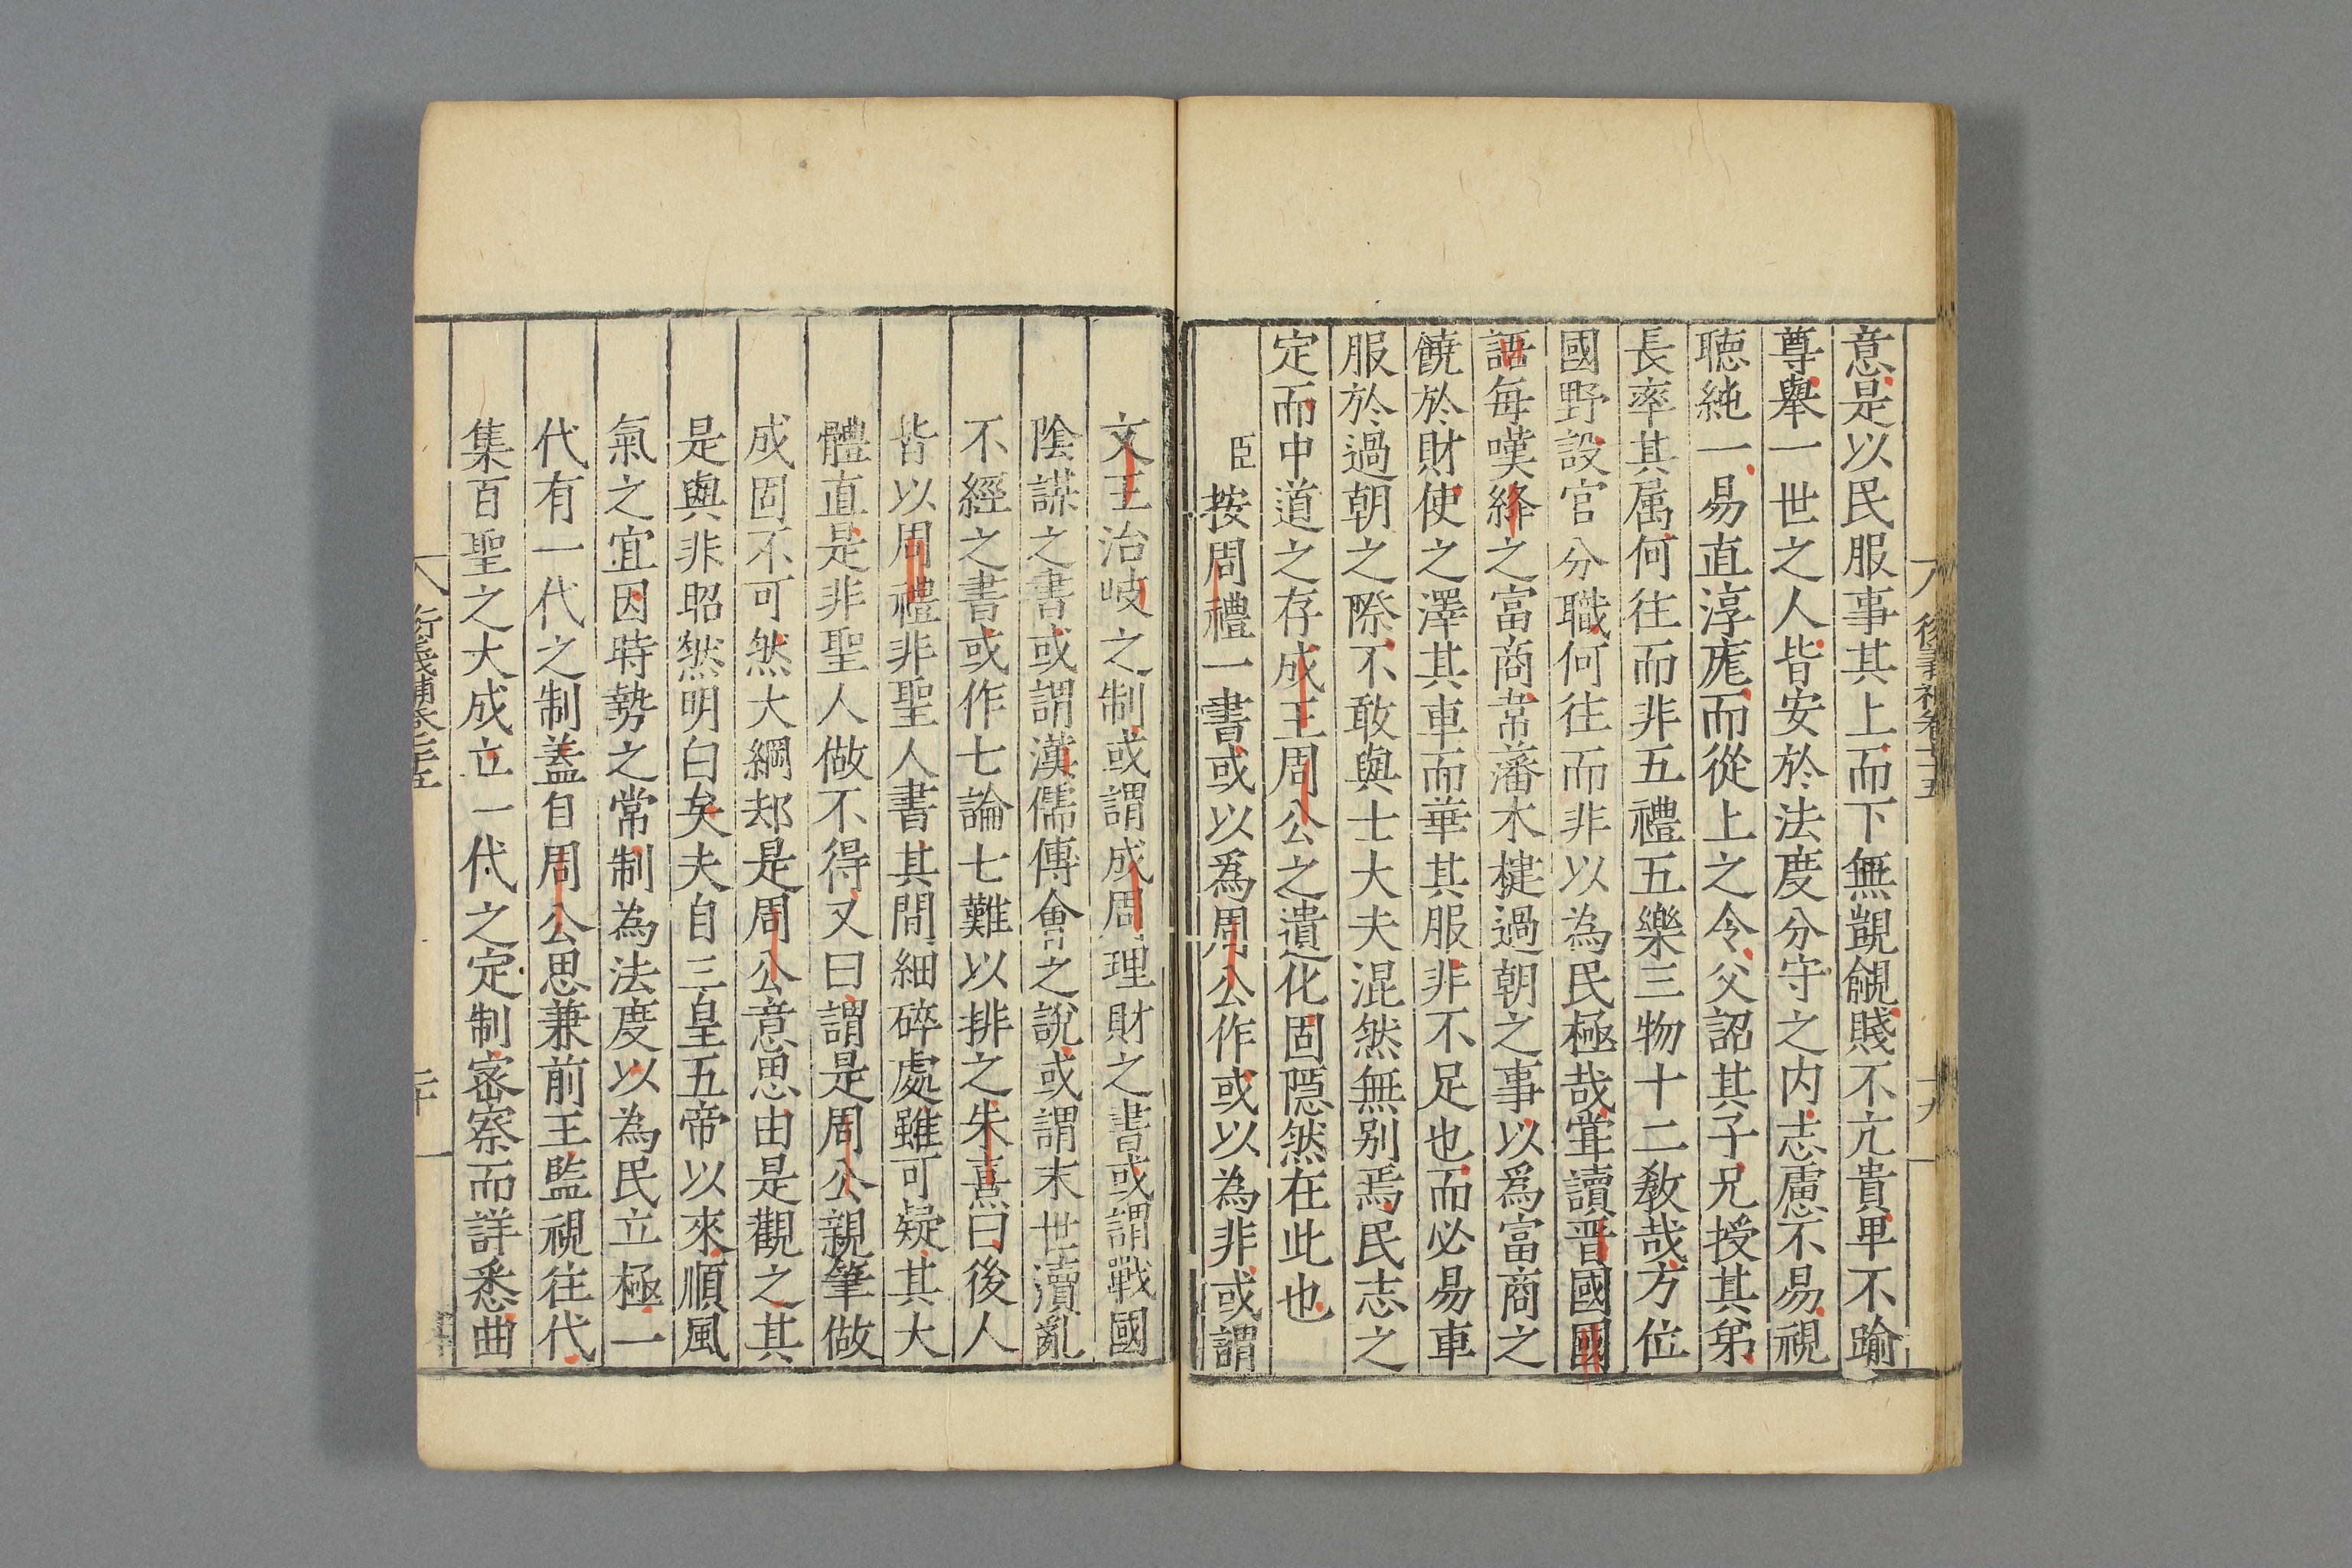 意是以民服事其上而下無覬覦賤不亢貴卑不踰
尊舉一世之人皆安於法度分守之内志慮不易視
聴純一易直淳厖而從上之令父詔其子兄授其弟
長率其属何往而非五禮五樂三物十二敎哉方位
國野設官分職何往而非以為民極哉甞讀晋國國
語每嘆絳之富商常藩木楗過朝之事以爲富商之
饒於財使之澤其車而華其服非不足也而必易車
服於過朝之際不敢與士大夫混然無别焉民志之
定而中道之存成王周公之遺化固隠然在此也
臣按周禮一書或以爲周公作或以為非或謂
文王治岐之制或謂成周理財之書或謂戰國
陰謀之書或謂漢儒傅會之說或謂末世瀆亂
不經之書或作七論七難以排之朱熹曰後人
皆以周禮非聖人書其間細碎處雖可疑其大
體直是非聖人做不得又曰謂是周公親筆做
成固不可然大綱却是周公意思由是觀之其
是與非昭然明白矣夫自三皇五帝以來順風
氣之宜因時勢之常制為法度以為民立極一
代有一代之制蓋自周公思兼前王監視往代
集百聖之大成立一代之定制密察而詳悉曲